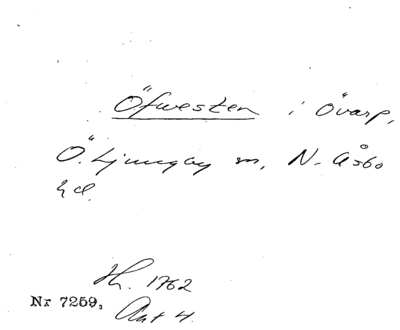 Öfwesten i Övarp,
Ö. Ljungby sn, N. Åsbo
hd.
Lh. 1762
Nr 7259, Aut 4.